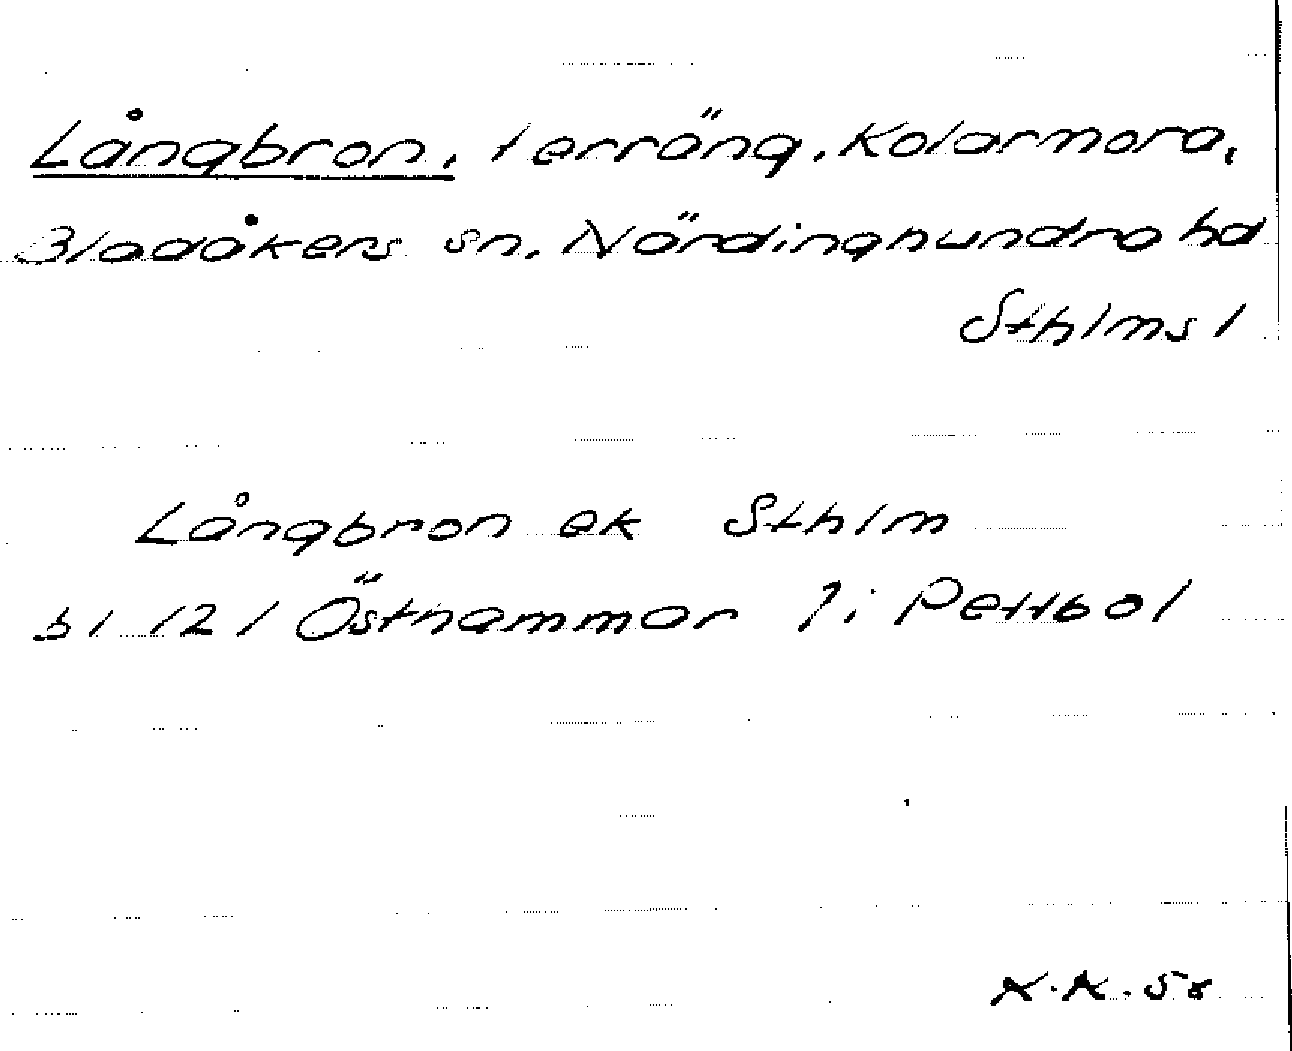 Långbron, terräng, Kolarmora,
Bladåkers sn, Närdinghundra hd
Sthlms l
Långbron ek Sthlm
bl 121 Östhammar 7i Pettbol
K.K. 58